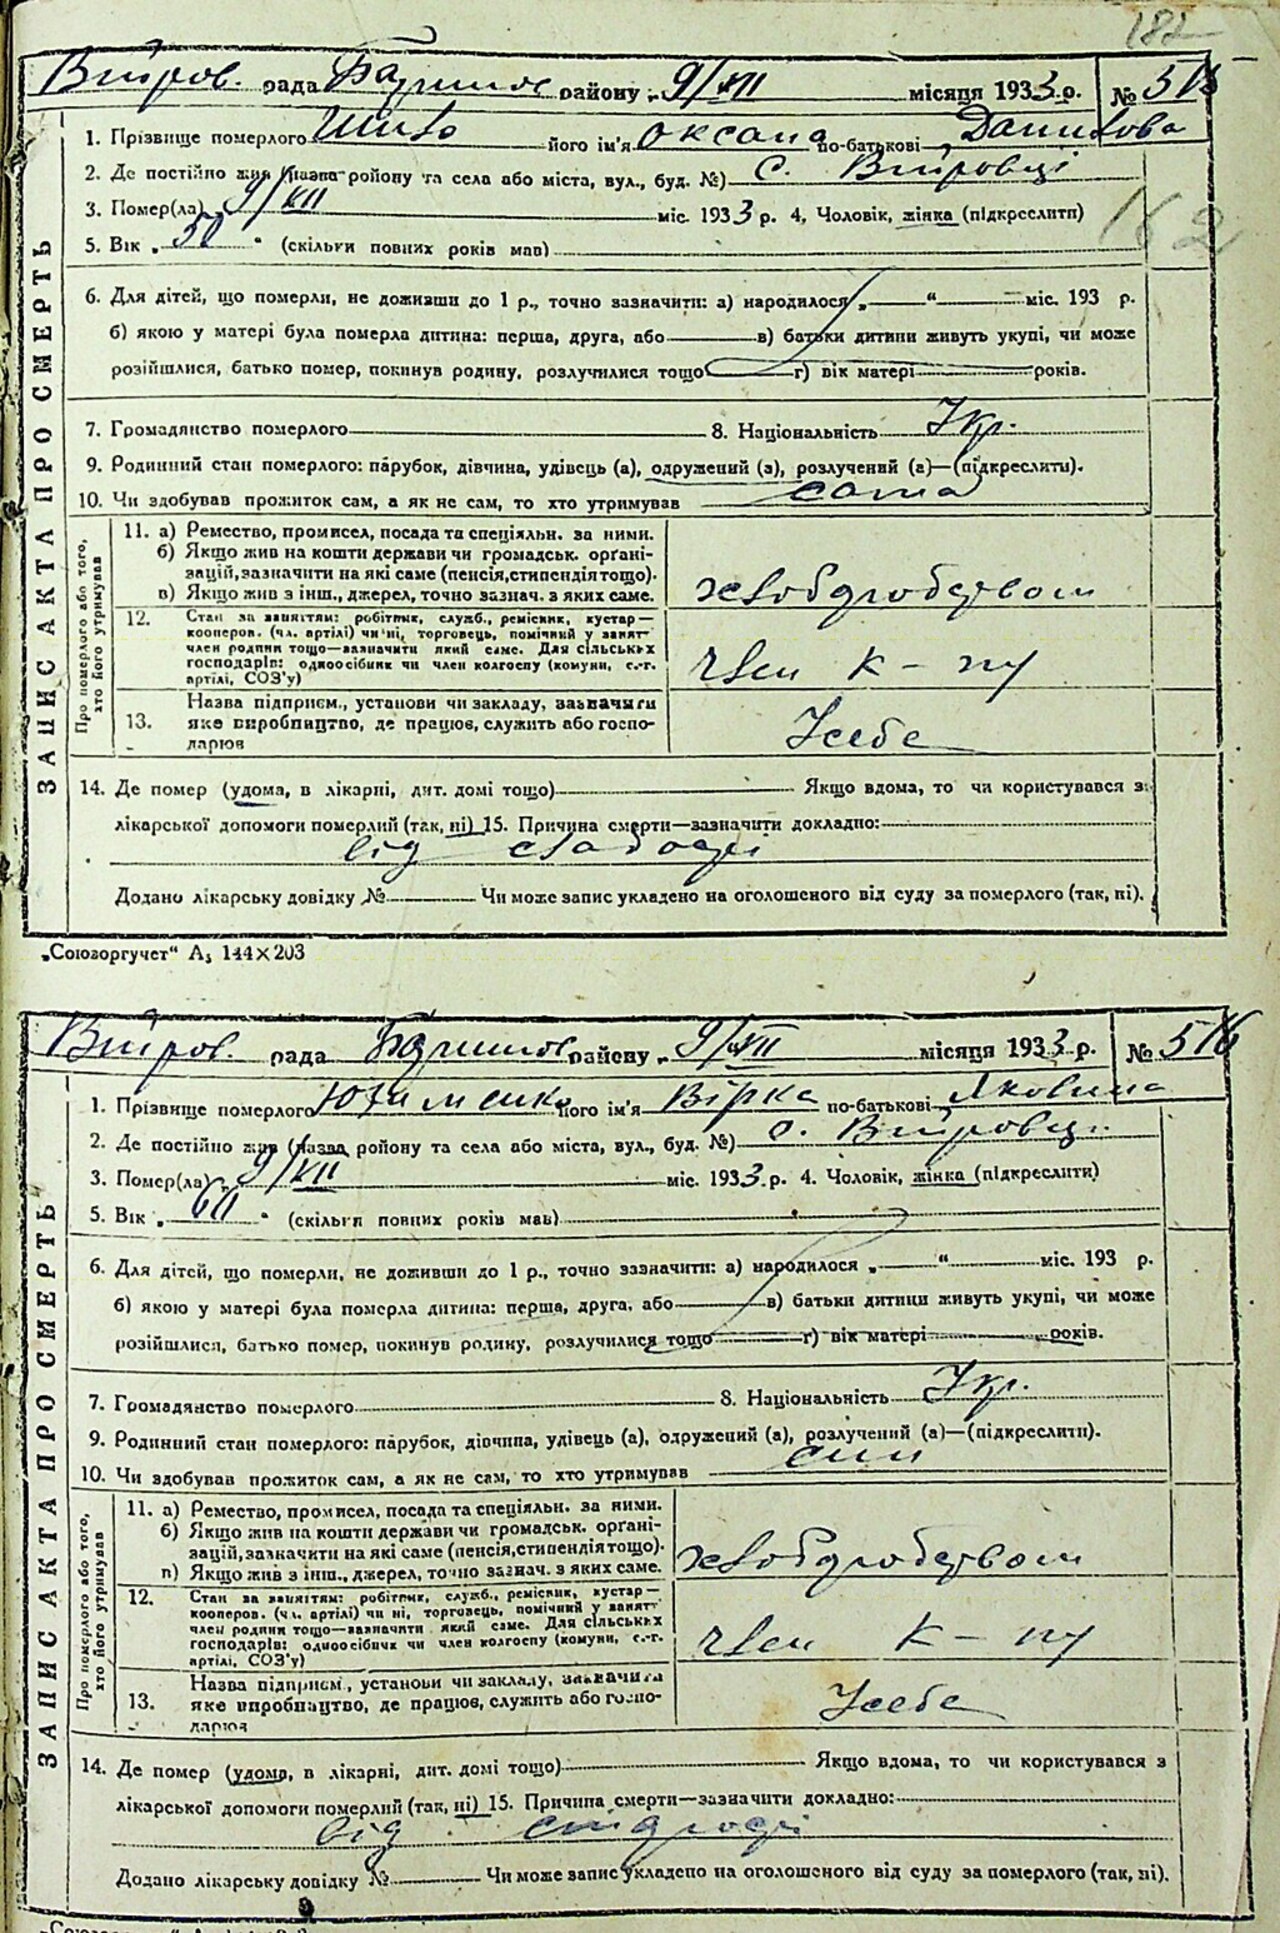 182
рада Баришов району „ 9/VII місяця 1933 р. №
1. Прізвище померлого Шило його ім'я Оксана по-батькові Данилова
2. Де постійно жив (назва району та села або міста, вул., буд. №) с.
3. Помер(ла) 9/VII міс. 1933 р. 4, Чоловік, жінка (підкреслити)
162
5. Вік „ 50 “ (скільки повних років мав)
6. Для дітей, що померли, не доживши до 1 р., точно зазначити: а) народилося „ “ міс. 193 р.
б) якою у матері була померла дитина: перша, друга, або в) батьки дитини живуть укупі, чи може
розійшлися, батько помер, покинув родину, розлучилися тощо г) вік матері років.
7. Громадянство померлого 8. Національність Укр.
9. Родинний стан померлого: парубок, дівчина, удівець (а), одружений (а), розлучений (а)—(підкреслити).
10. Чи здобував прожиток сам, а як не сам, то хто утримував сама
ЗАПИС АКТА ПРО СМЕРТЬ
Про померлого або того,
хто його утримував
11. а) Ремество, промисел, посада та спеціяльн. за ними.
б) Якщо жив на кошти держави чи громадськ. орґані-
зацій, зазначити на які саме (пенсія, стипендія тощо).
в) Якщо жив з інш., джерел, точно зазнач. з яких саме.
хлібдробством
12. Стан за заняттям: робітник, служб., ремісник, кустар—
кооперов. (чл. артілі) чи ні, торговець, помічний у занят-
член родини тощо—зазначити який саме. Для сільських
господарів: одноосібник чи член колгоспу (комуни, с.-г.
артілі, СОЗ'у)
член к-пу
Назва підприєм., установи чи закладу, зазначити
13. яке виробництво, де працює, служить або госпо-
дарює
У себе
14. Де помер (удома, в лікарні, дит. домі тощо) Якщо вдома, то чи користувався з
лікарської допомоги померлий (так, ні) 15. Причина смерти—зазначити докладно:
від слабості
Додано лікарську довідку № Чи може запис укладено на оголошеного від суду за померлого (так, ні).
„Союзоргучет“ А5 144×203
рада Баришов району „ 9/VII місяця 1933 р. № 516
1. Прізвище померлого Юхименко його ім'я Вірка по-батькові Яковина
2. Де постійно жив (назва району та села або міста, вул., буд. №) с.
3. Помер(ла) 9/VII міс. 1933 р. 4. Чоловік, жінка (підкреслити)
5. Вік „ 60 “ (скільки повних років мав)
6. Для дітей, що померли, не доживши до 1 р., точно зазначити: а) народилося „ “ міс. 193 р.
б) якою у матері була померла дитина: перша, друга, або в) батьки дитини живуть укупі, чи може
розійшлися, батько помер, покинув родину, розлучилися тощо г) вік матері років.
7. Громадянство померлого 8. Національність Укр.
9. Родинний стан померлого: парубок, дівчина, удівець (а), одружений (а), розлучений (а)—(підкреслити).
10. Чи здобував прожиток сам, а як не сам, то хто утримував син
ЗАПИС АКТА ПРО СМЕРТЬ
Про померлого або того,
хто його утримував
11. а) Ремество, промисел, посада та спеціяльн. за ними.
б) Якщо жив на кошти держави чи громадськ. орґані-
зацій, зазначити на які саме (пенсія, стипендія тощо).
в) Якщо жив з інш., джерел, точно зазнач. з яких саме.
хлібдробством
12. Стан за заняттям: робітник, служб., ремісник, кустар—
кооперов. (чл. артілі) чи ні, торговець, помічний у занятт
член родини тощо—зазначити який саме. Для сільських
господарів: одноосібник чи член колгоспу (комуни, с.-г.
артілі, СОЗ'у)
член к-пу
Назва підприєм., установи чи закладу, зазначити
13. яке виробництво, де працює, служить або госпо-
дарює
У себе
14. Де помер (удома, в лікарні, дит. домі тощо) Якщо вдома, то чи користувався з
лікарської допомоги померлий (так, ні) 15. Причина смерти—зазначити докладно:
від
Додано лікарську довідку № Чи може запис укладено на оголошеного від суду за померлого (так, ні).